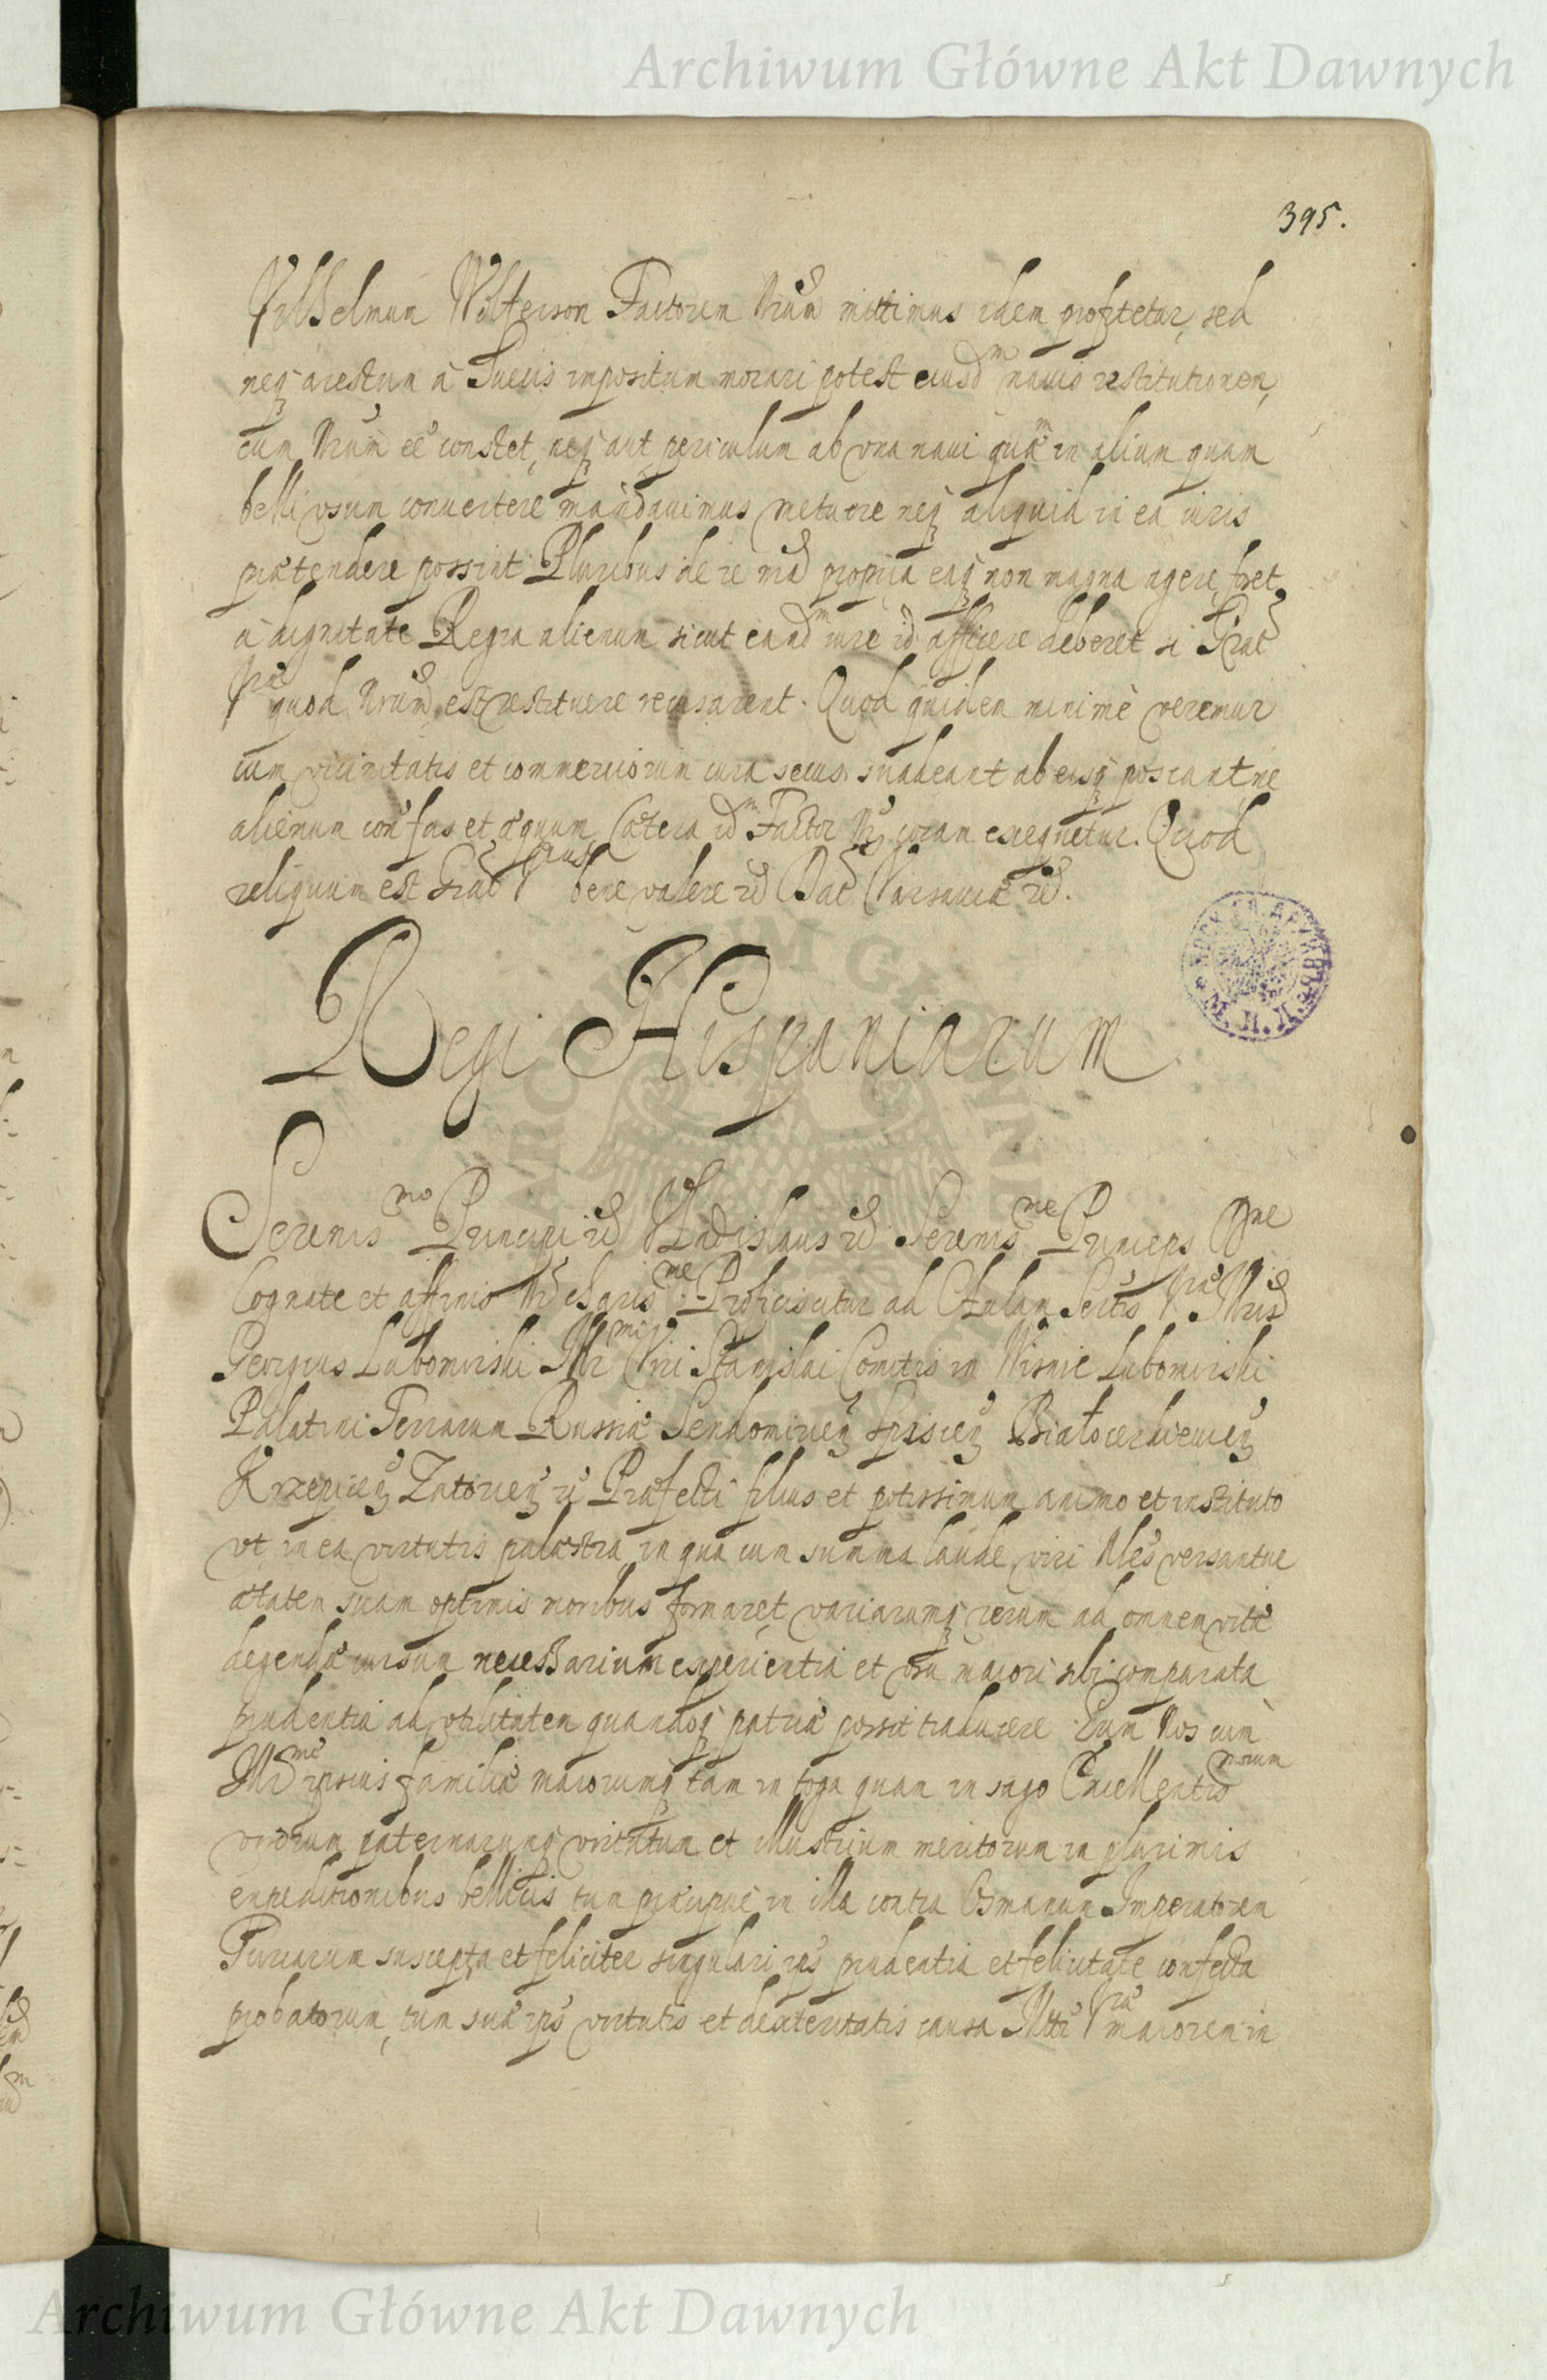 Archiwum Główne Akt Dawnych
395.
Vilhelmum Wilterson Factorem Nrum mittimus idem profitetur, sed
neq arestum à Suecis impositum morari potest eiusd^m nauis restitutionem,
cum Nrum eē constet, neq aut periculum ab vna naui quā^m in alium quam
belli vsum conuertere mandauimus metuere neq aliquid in ea iuris
prætendere possint. Pluribus de re nrā propria eaq non magna agere foret
à dignitate Regia alienum sicut eand^m iure id afficere deberet si Frat
Vræ quod Nrum est restituere recusarent. Quod quidem minimè veremur
cum vicinitatis et commerciorum iura secus suadeant ab eisq poscant ne
alienum con fas et æquum. Cætera id^m Factor Nr coram exequetur. Quod
reliquum est Frat V bene valere Dat Varsauiæ
Regi Hispaniarum
Serenis^mo Principi Vladislaus Serenis^ne Princeps Dne
Cognate et affinis Nr charis^me. Proficiscitur ad Aulam Sertis Vræ
Georgius Lubomirski Illr^mi Viri Stanislai Comitis in Wisnic Lubomirski
Palatini Terrarum Russiæ Sendomirien Spisien Białocerkiewien
Krzepicen Zatorien Præfecti filius et potissimum animo et instituto
vt in ea virtutis palæstra in qua cum summa laude viri Nles versantur
ætatem suam optimis moribus formaret, variarumq rerum ad omnem vitæ
degendæ cursum necessarium experientia et vsu maiori sibi comparata
prudentiā ad vtilitatem quandoq patriæ possit traducere. Eum Nos cum
Illr^mæ ipsius familiæ maiorumq tam in toga quam in sago Excellentis^morum
virorum paternarumq virtutum et illustrium meritorum in plurimis
expeditionibus bellicis tum præcipuè in illa contra Osmanum Imperatorem
Turcarum suscepta et feliciter singulari ips prudentia et felicitate confecta
probatorum, tum suæ ips virtutis et dexteritatis causa Mtti Vræ maiorem in
Archiwum Główne Akt Dawnych